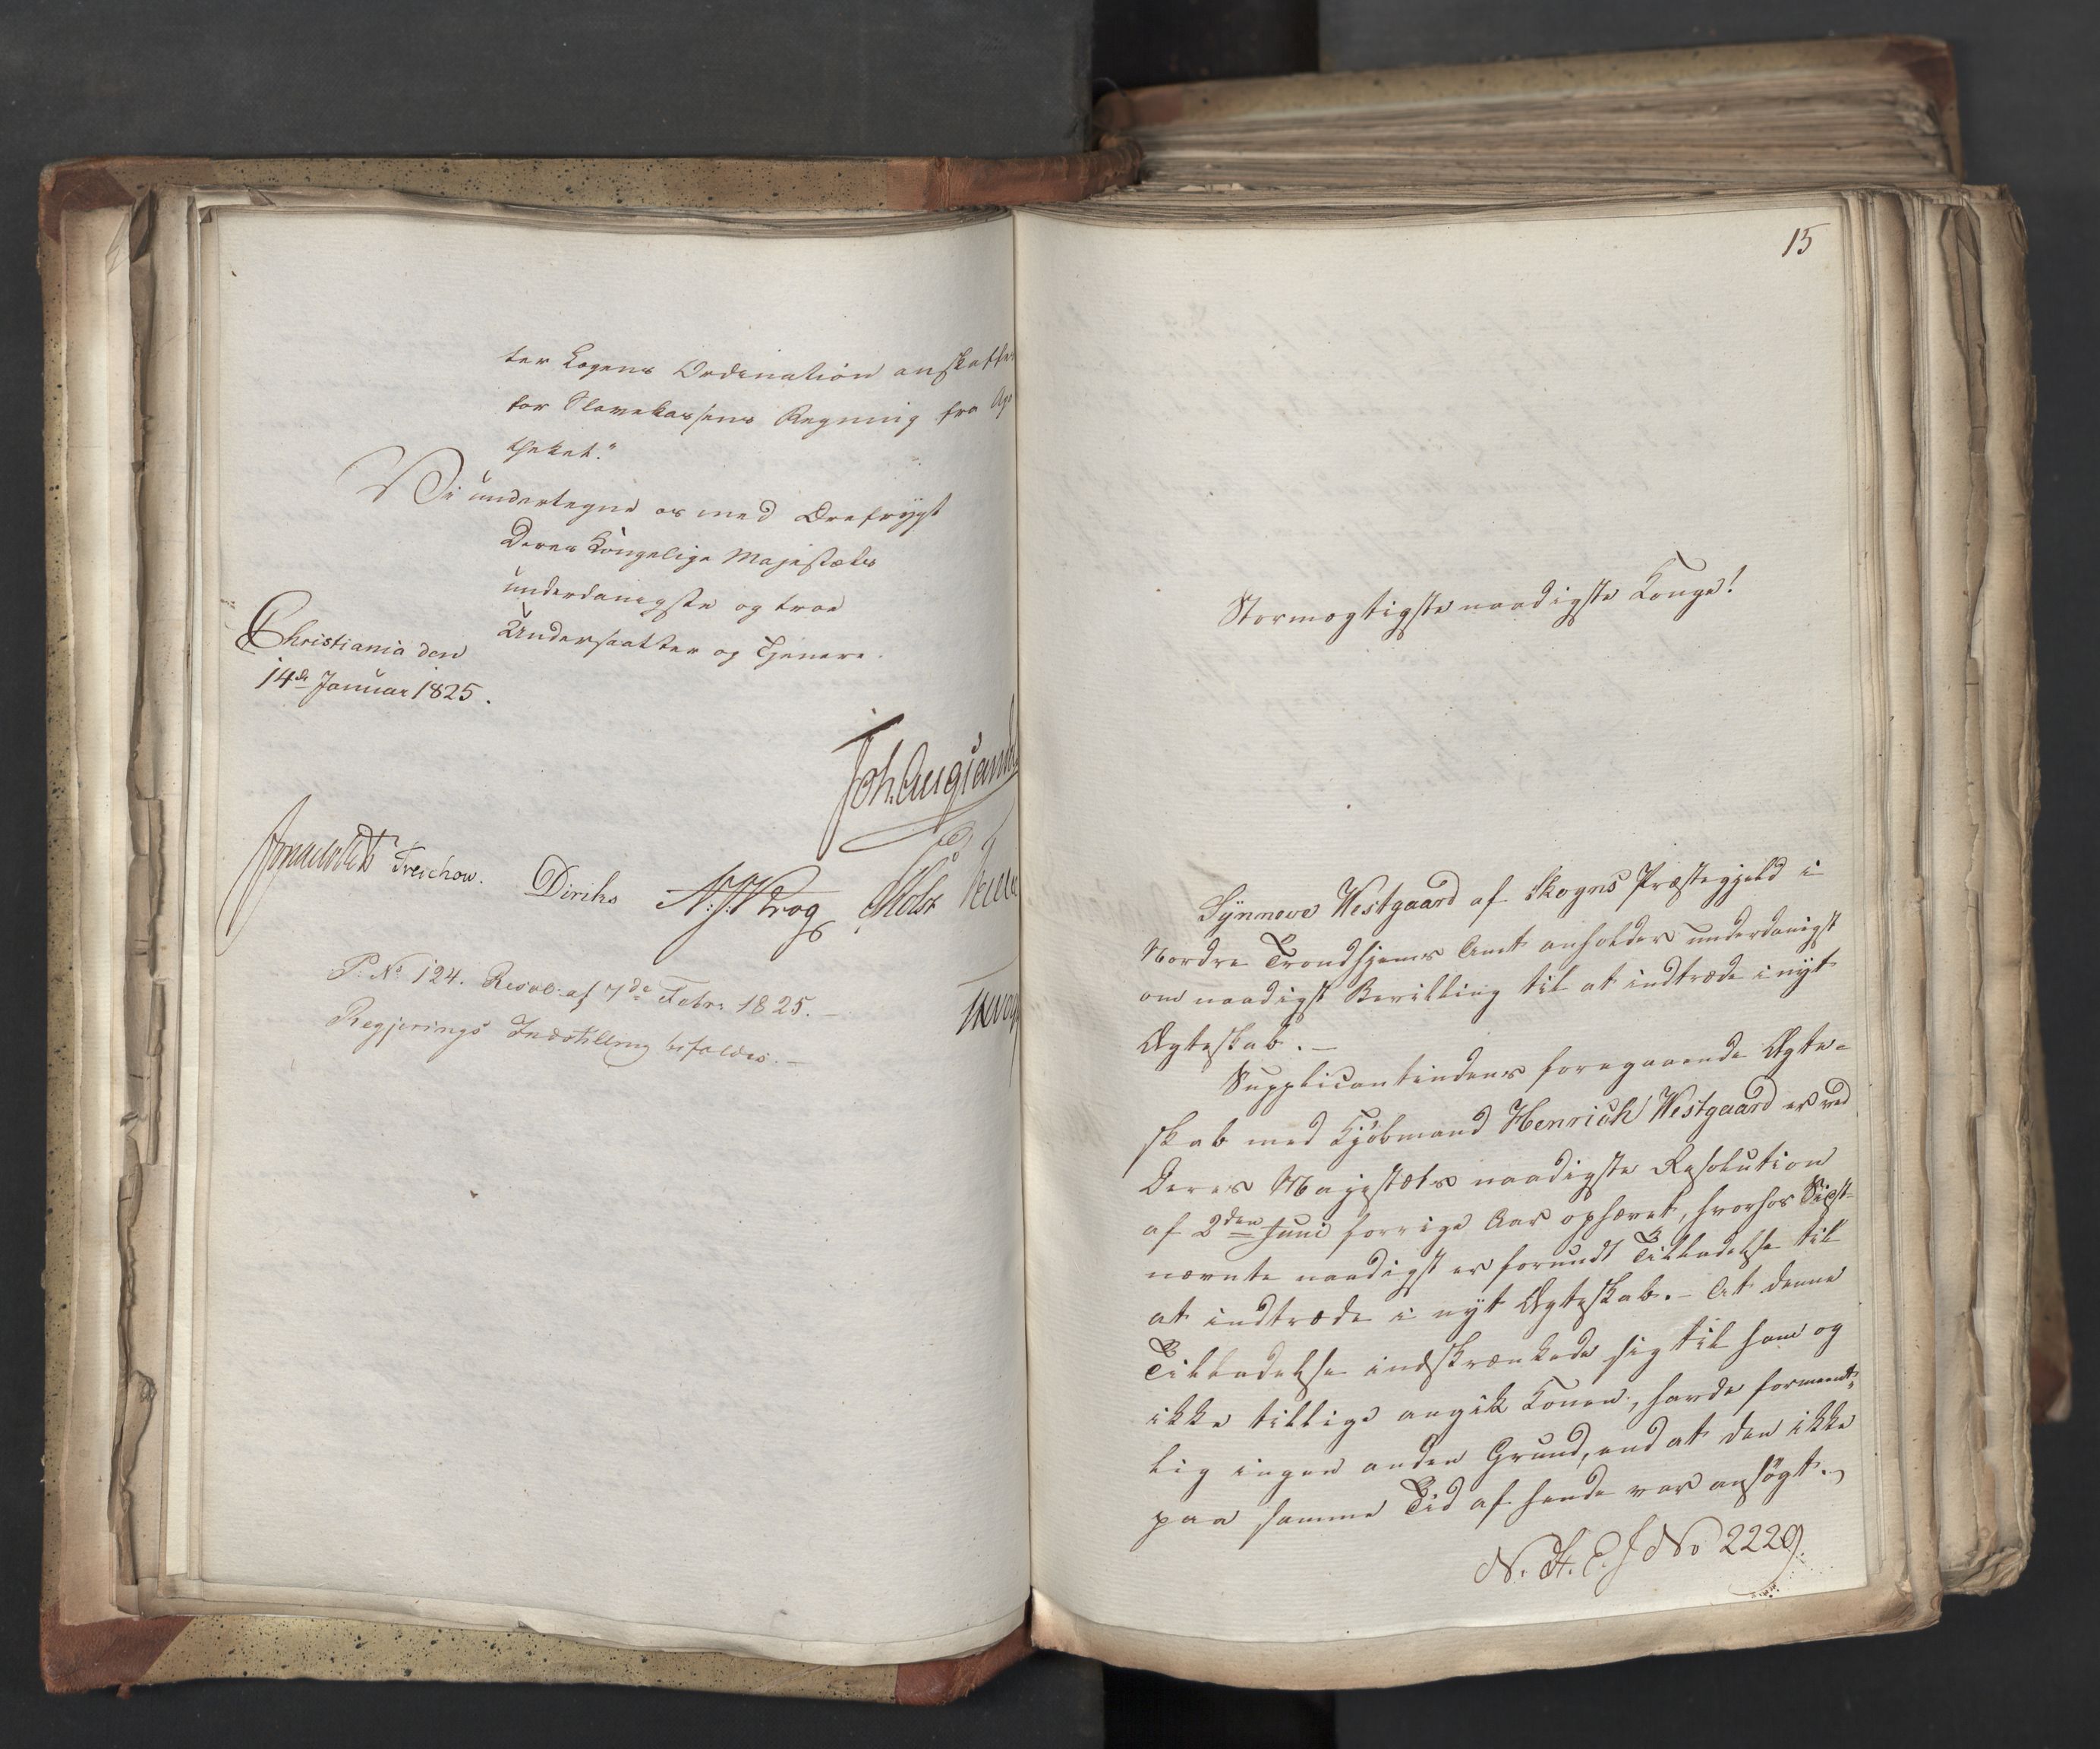 ter Lægens Ordination anskaffes
for Slavekassens Regning fra Apo
theket."
Vi undertegne os med Ærefrygt
Deres Kongelige Majestæts
underdanigste og troe
Undersaatter og Tjenere.
Christiania den
14de Januar 1825.
Joh. Aug Sand
Sommerhielm Treschow. Diriks N: J: Krog JHolst
P: No 124. Resol: af 7de Febr. 1825.-
Regjerings Indstilling bifaldes.-
15
Stormægtigste naadigste Konge!
Synneve Westgaard af Skogns Præstegjeld i
Nordre Trondhjems Amt anholder underdanigst
om naadigst Bevilling til at indtræde i nyt
Ægteskab.-
Supplicantindens foregaaende Ægte-
skab med Kjøbmand Henrich Westgaard er ved
Deres Majestæts naadigste Resolution
af 2den Juni forrige Aar ophævet, hvorhos Sidst-
nævnte naadigst er forundt Tilladelse til
at indtræde i nyt Ægteskab.- At denne
Tilladelse indskrænkede sig til ham og
ikke tillige angik Konen, havde formeent-
lig ingen anden Grund, end at den ikke
paa samme Tid af hende var ansøgt.-
N. H. E. J No 2229.